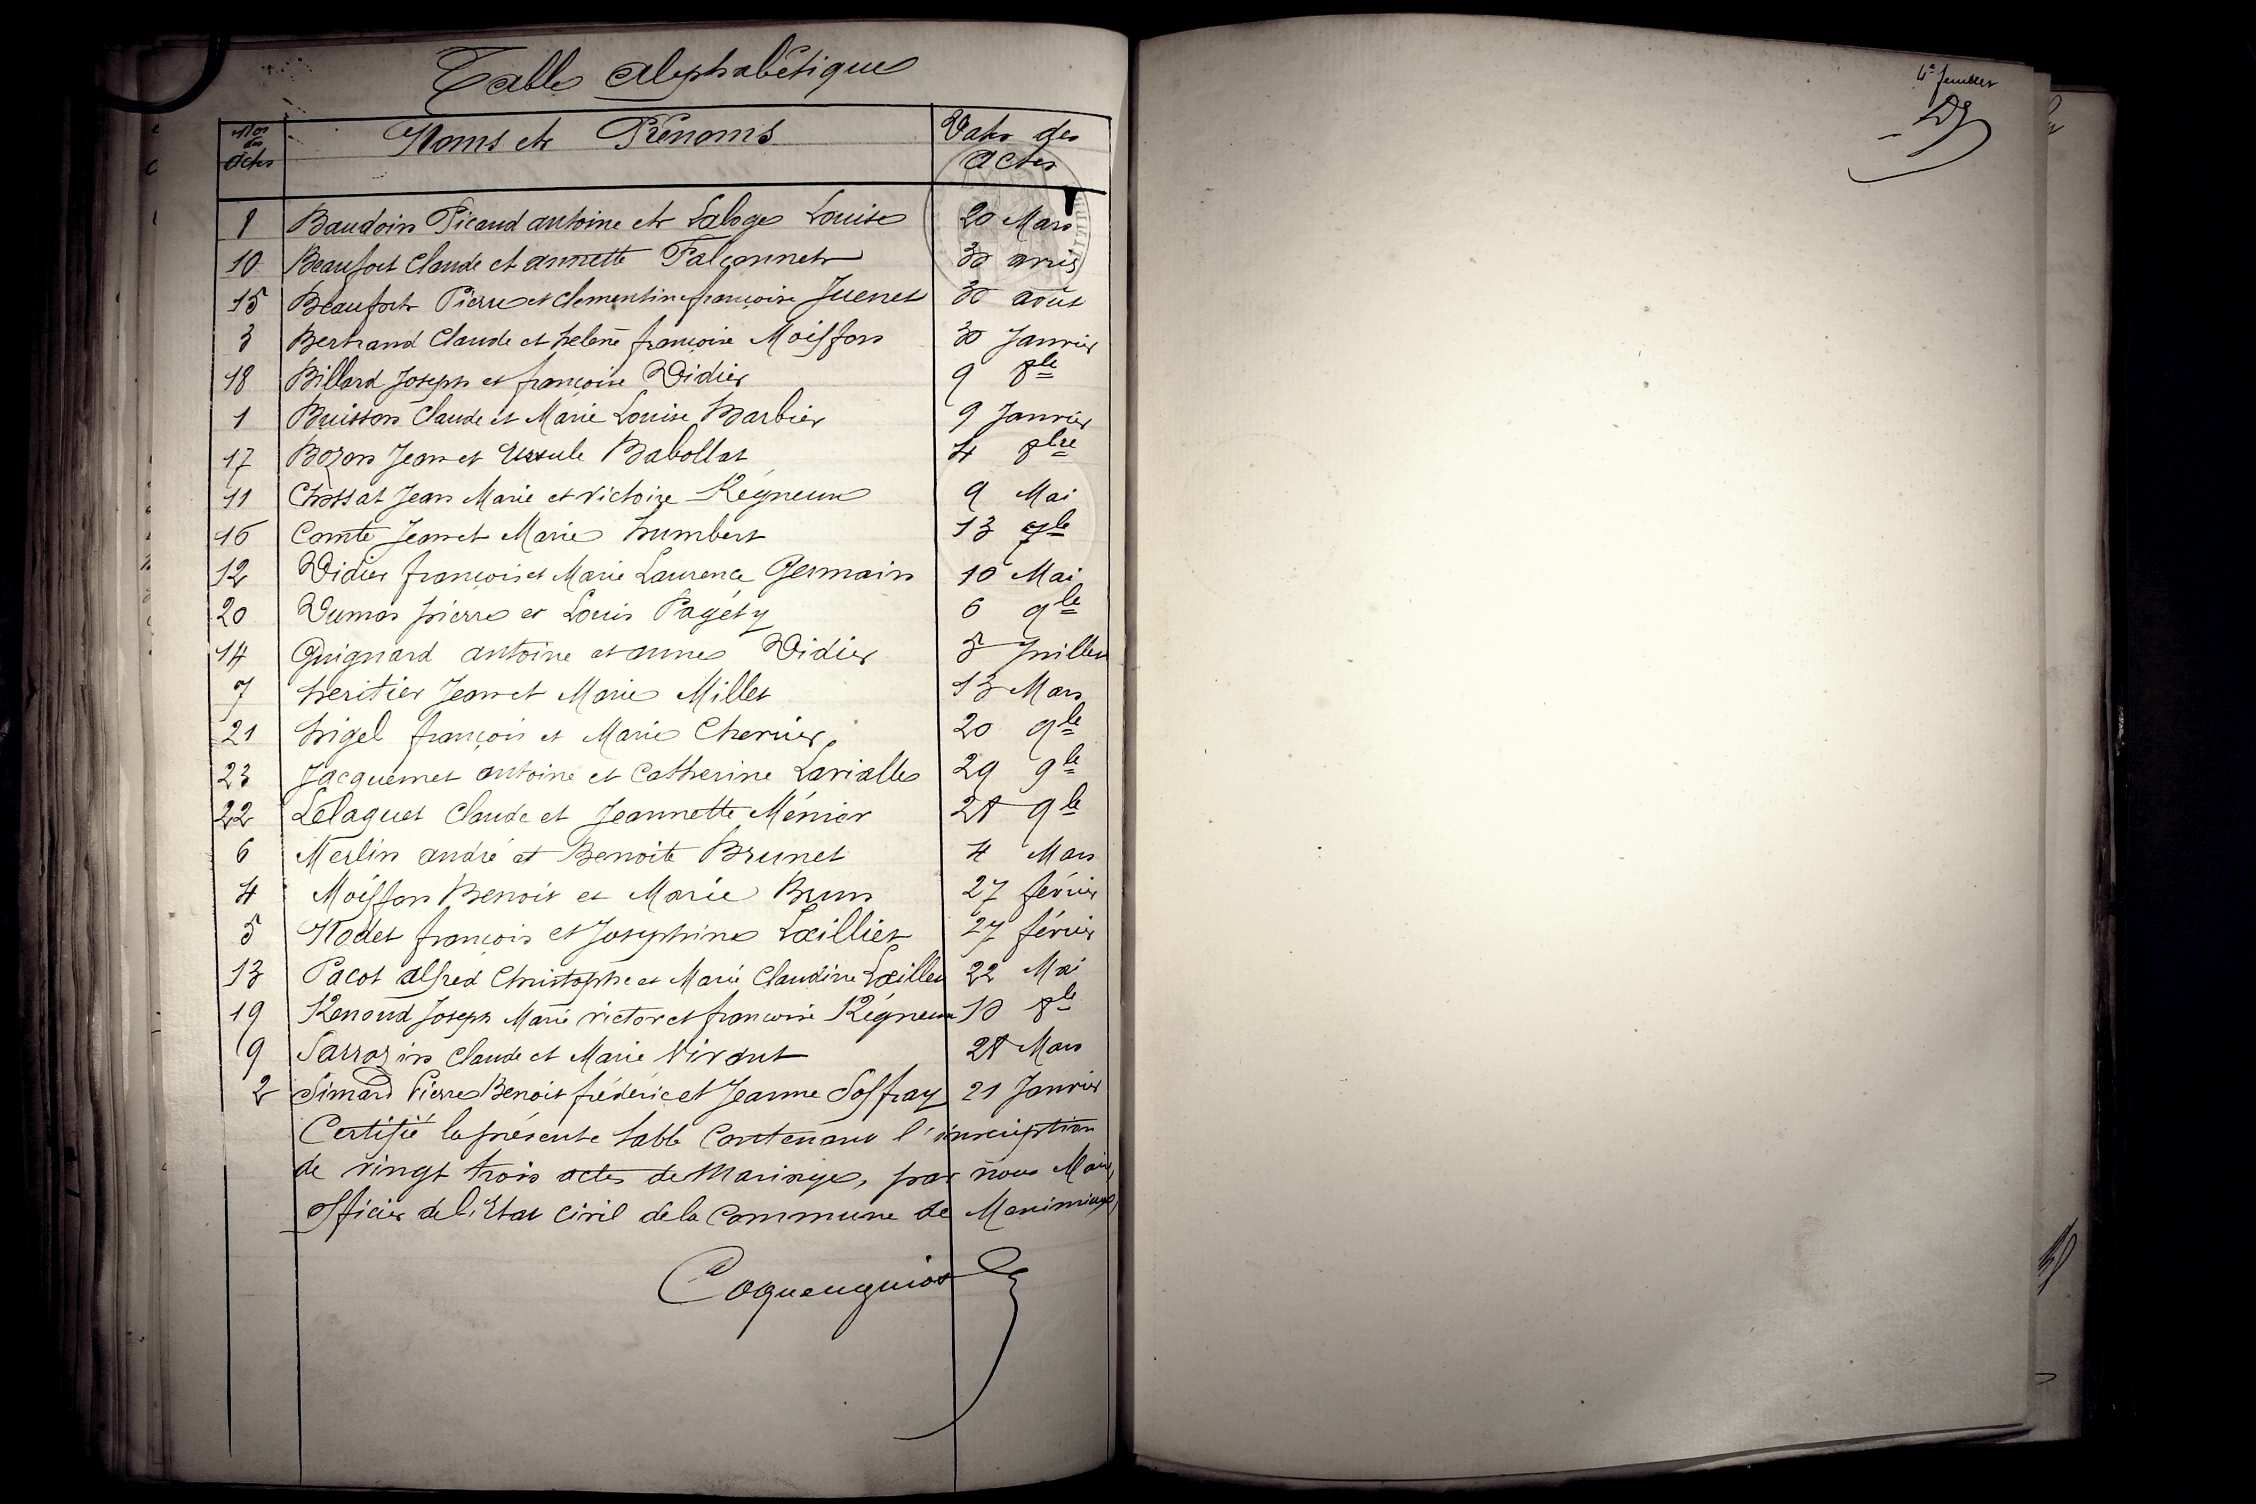 Table alphabétique
Nos des actes Noms et Prénoms Dates des actes
8 Baudoin Picaud antoine et Laloge Louise 20 Mars
10 Beaufort Claude et annette Falconnet 30 avril
15 Beaufort Pierre et Clementine françoise Juenet 30 août
3 Bertrand Claude et helène françoise Moiffon 30 Janvier
18 Billard Joseph et françoise Didier 9 8bre
1 Buisson Claude et Marie Louise Barbier 9 Janvier
17 Bozon Jean et Ursule Babollat 4 8bre
11 Chossat Jean Marie et victoire Régneux 9 Mai
16 Comte Jean et Marie humbert 13 7bre
12 Didier françois et Marie Laurence Germain 10 Mai
20 Dumas pierre et Louis Pagéty 6 9bre
14 Guignard antoine et anne Didier 5 Juillet
7 heritier Jean et Marie Millet 13 Mars
21 higel françois et Marie Chervier 20 9bre
23 Jacquemet antoine et Catherine Lavialle 29 9bre
22 Lelaquet Claude et Jeannette Ménier 28 9bre
6 Merlin andré et Benoite Brunet 4 Mars
4 Moiffon Benoit et Marie Brun 27 février
5 Nodet françois et Josephine Lœillier 27 février
13 Pacot alfred Christophe et Marie Claudine Lœillet 22 Mai
19 Renoud Joseph Marie victor et françoise Régneux 10 8bre
9 Sarrozin Claude et Marie Virout 28 Mars
2 Simard Pierre Benoit frédéric et Jeanne Soffray 21 Janvier
Certifié la présente table Contenant l'inscription
de vingt trois actes de Mariage, par nous Maire,
officier de l'Etat civil de la Commune de Meximieux
Coqueugniot
4e feuillet